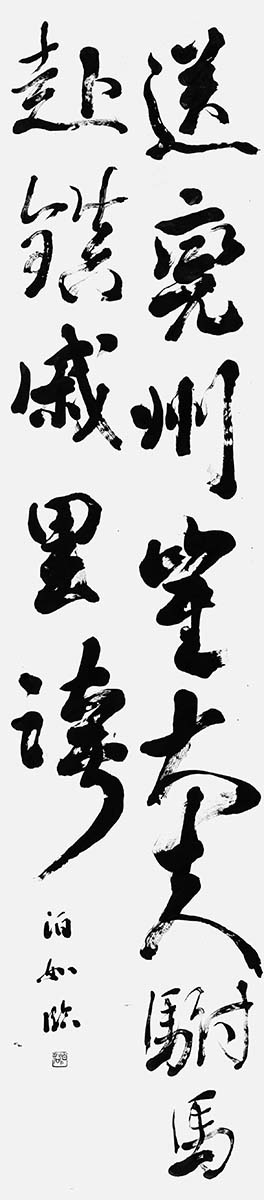 送兗州崔大夫駙馬
赴鎮戚里誇
泊如臨